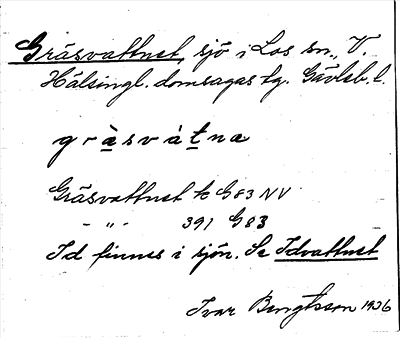 Gräsvattnet, sjö i Los sn., V.
Hälsingl. domsagas tg. Gävleb. l.
gràsvátna
Gräsvattnet k G83 NV
- " - 391 G83
Id finnes i sjön. Se Idvattnet
Ivar Bengtsson 1926